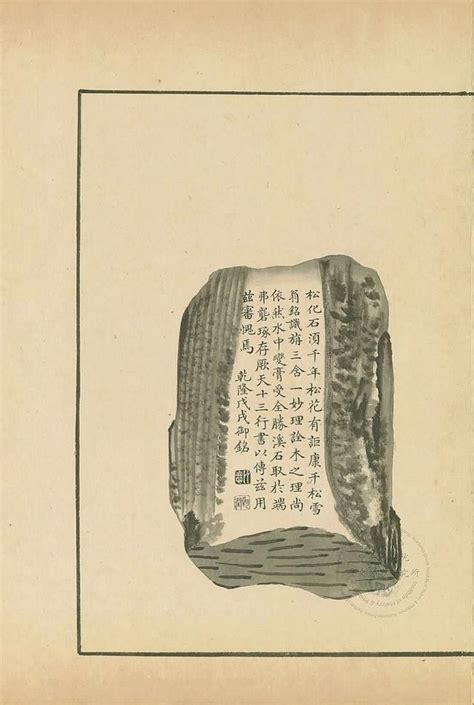 松化石須千年松花有詎康千松雪
翁銘識旃三舍一妙理詮木之理尚
依然水中變膏受全勝溪石取於端
弗礱琢存厥天十三行書以傳茲用
茲審愧焉
乾隆戊戌御銘